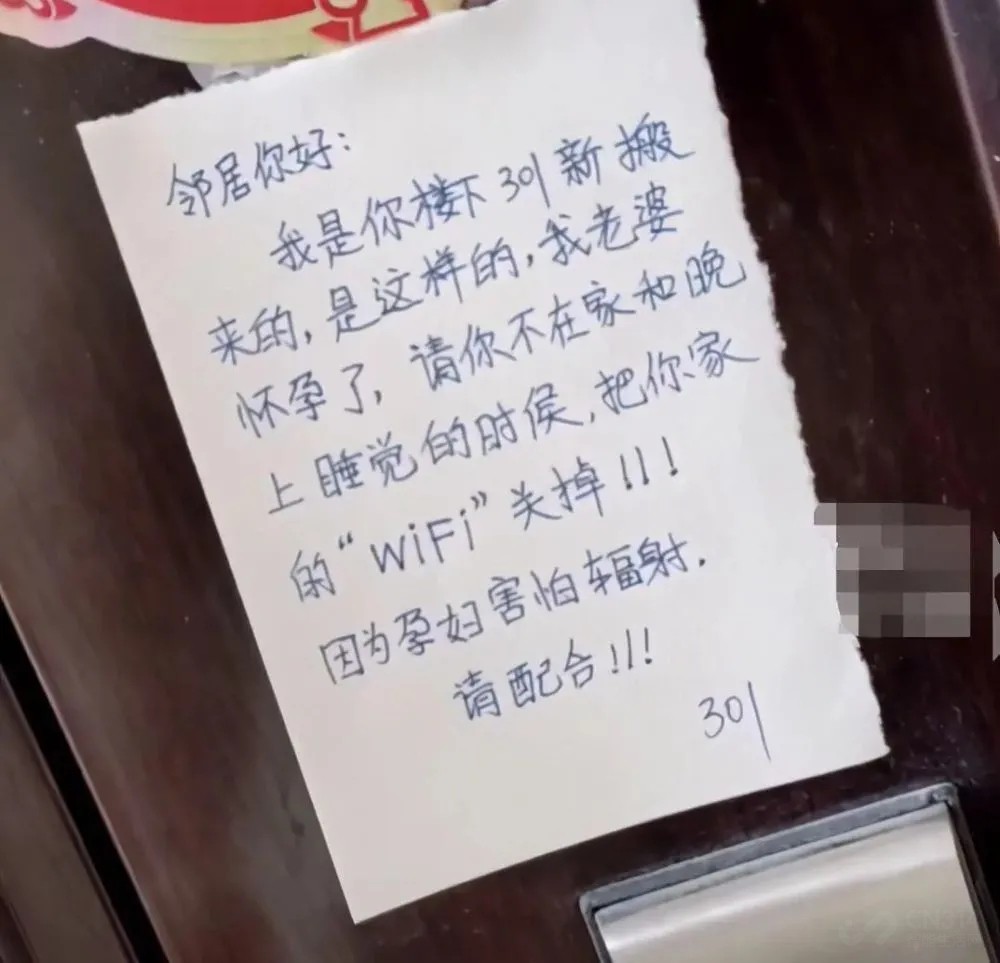 邻居你好:
我是你楼下301新搬
来的,是这样的,我老婆
怀孕了,请你不在家和晚
上睡觉的时侯,把你家
的“WiFi”关掉!!!
因为孕妇害怕辐射.
请配合!!!
301